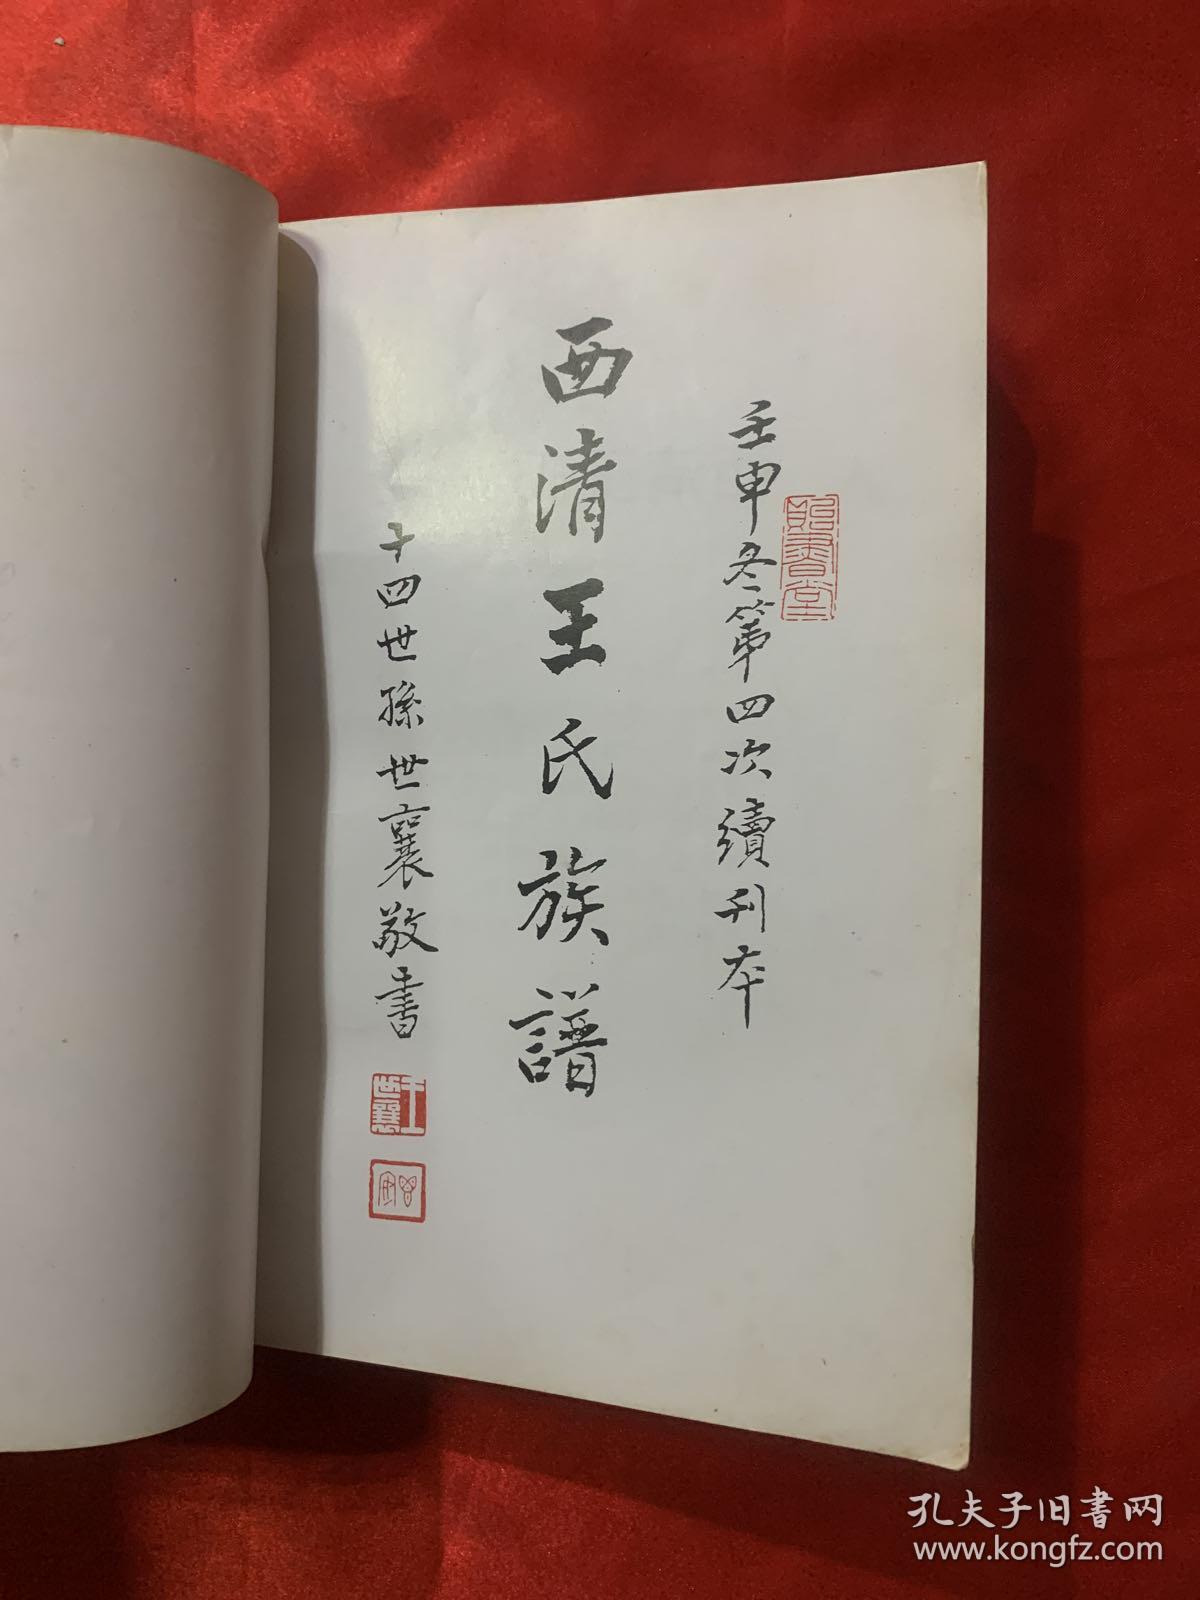 壬申冬第四次續刊本
西清王氏族譜
十四世孫世襄敬書
王世襄
孔夫子旧书网
www.kongfz.com